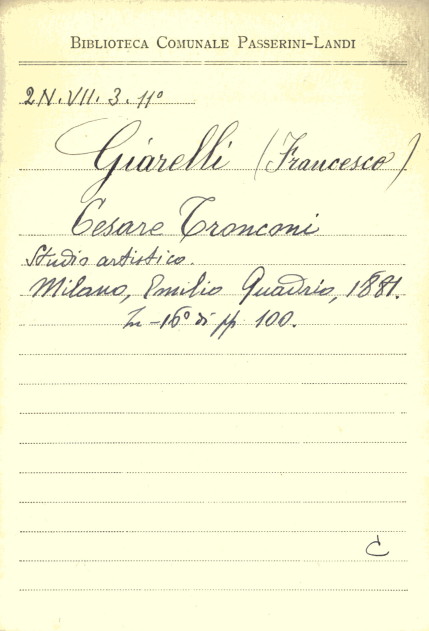 BIBLIOTECA COMUNALE PASSERINI-LANDI
2N.VII.3.11º
Giarelli (Francesco)
Cesare Tronconi
Studio artistico.
Milano, Emilio Quadrio, 1881.
In-16º di pp 100.
C